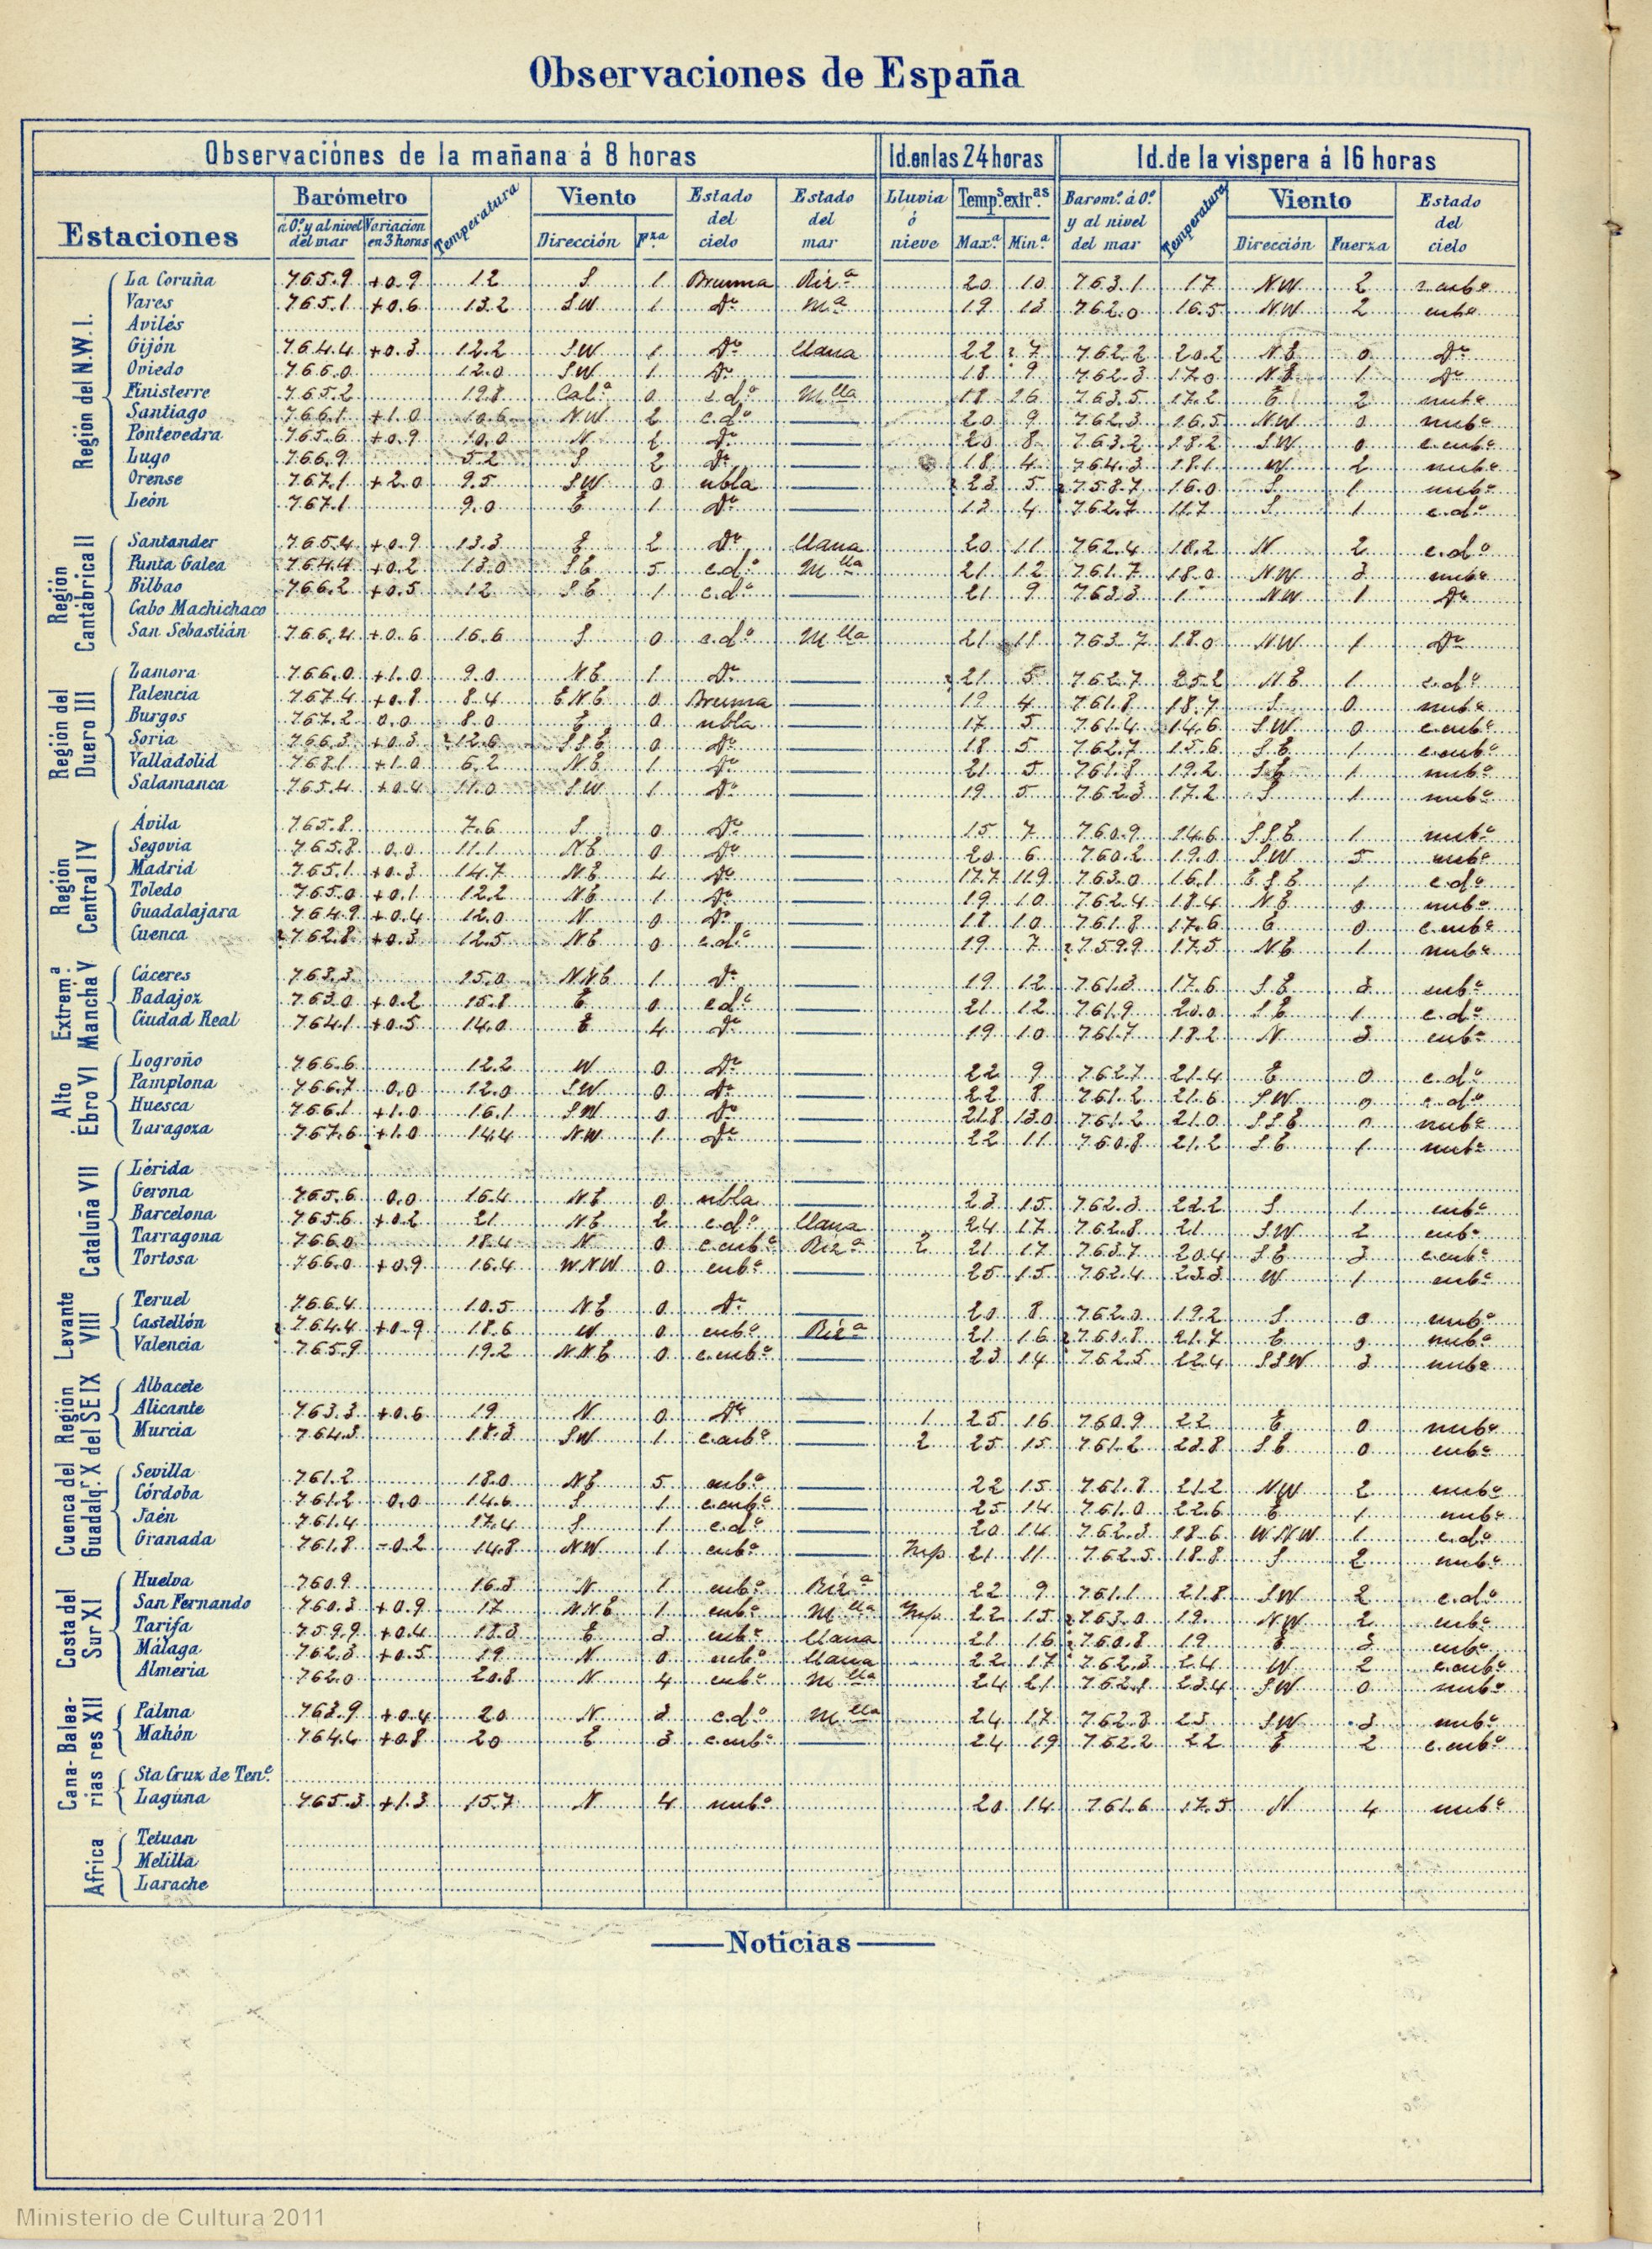 Observaciones de España
Observaciónes de la mañana á 8 horas Id. en las 24 horas Id. de la vispera á 16 horas
Estaciones Barómetro Temperatura Viento Estado del cielo Estado del mar Lluvia ó nieve Temp.s extr.as Barom.º á 0º y al nivel del mar Temperatura Viento Estado del cielo
á 0º y al nivel del mar Variacion en 3 horas Dirección F.za Max.ª Min.ª Dirección Fuerza
Región del N.W. I.
La Coruña 765.9 +0.9 12 S 1 Bruma Riz.ª 20 10 763.1 17 NW 2
Vares 765.1 +0.6 13.2 SW 1 Dº Mª 19 13 762.0 16.5 NW 2 cubº
Avilés
Gijón 764.4 +0.3 12.2 SW 1 Dº Llana 22 ? 7 762.2 20.2 NE 0 Dº
Oviedo 766.0 12.0 SW 1 Dº — 18 9 762.3 17.0 NE 1 Dº
Finisterre 765.2 Calª 0 c.dº Mlla 763.5 17.2 E 2 nubº
Santiago 766.1 +1.0 10.6 NW 2 c.dº — 20 9 762.3 16.5 NW 0 nubº
Pontevedra 765.6 +0.9 10.0 N 2 Dº — 20 8 763.2 18.2 SW 0 c.cubº
Lugo 766.9 5.2 S 2 Dº — 18 4 764.3 18.1 W 2 nubº
Orense 767.1 +2.0 9.5 SW 0 nbla — 23 5 758.7 16.0 S 1 nubº
León 767.1 9.0 E 1 Dº — 13 4 762.7 11.7 S 1 c.dº
Región Cantábrica II
Santander 765.4 +0.9 13.3 E 2 Dº Llana 20 11 762.4 18.2 N 2 c.dº
Punta Galea 764.4 +0.2 13.0 SE 5 c.dº Mlla 21 12 761.7 18.0 NW 3 nubº
Bilbao 766.2 +0.5 12 SE 1 c.dº — 21 9 763.3 NW 1 Dº
Cabo Machichaco
San Sebastián 766.4 +0.6 16.6 S 0 c.dº Mlla 21 11 763.7 18.0 NW 1 Dº
Región del Duero III
Zamora 766.0 +1.0 9.0 NE 1 Dº — 21 5 762.7 25.2 NE 1 c.dº
Palencia 767.4 +0.8 8.4 ENE 0 Bruma — 19 4 761.8 18.7 S 0 nubº
Burgos 767.2 0.0 8.0 E 0 nbla — 17 5 761.4 14.6 SW 0 c.cubº
Soria 766.3 +0.3 ? 12.6 SSE 0 Dº — 18 5 762.7 15.6 SE 1 c.cubº
Valladolid 768.1 +1.0 6.2 NE 1 Dº — 21 5 761.8 19.2 SE 1 nubº
Salamanca 765.4 +0.4 11.0 SW 1 Dº — 19 5 762.3 17.2 S 1 nubº
Región Central IV
Ávila 765.8 7.6 S 0 Dº — 15 7 760.9 14.6 SSE 1 nubº
Segovia 765.8 0.0 11.1 NE 0 Dº — 20 6 760.2 19.0 SW 5 nubº
Madrid 765.1 +0.3 14.7 NE 4 Dº — 17.7 11.9 763.0 16.1 ESE 1 c.dº
Toledo 765.0 +0.1 12.2 NE 1 Dº — 19 10 762.4 18.4 NE 0 nubº
Guadalajara 764.9 +0.4 12.0 N 0 Dº — 18 10 761.8 17.6 E 0 c.cubº
Cuenca ? 762.8 +0.3 12.5 NE 0 c.dº — 19 7 ? 759.9 17.5 NE 1 nubº
Extrem.ª Mancha V
Cáceres 763.3 15.0 NNE 1 Dº — 19 12 761.3 17.6 SE 3 nubº
Badajoz 763.0 +0.2 15.8 E 0 c.dº — 21 12 761.9 20.0 SE 1 c.dº
Ciudad Real 764.1 +0.5 14.0 E 4 Dº — 19 10 761.7 18.2 N 3 cubº
Alto Ebro VI
Logroño 766.6 12.2 W 0 Dº — 22 9 762.7 21.4 E 0 c.dº
Pamplona 766.7 0.0 12.0 SW 0 Dº — 22 8 761.2 21.6 SW 0 c.dº
Huesca 766.1 +1.0 16.1 SW 0 Dº — 21.8 13.0 761.2 21.0 SSE 0 nubº
Zaragoza 767.6 +1.0 14.4 NW 1 Dº — 22 11 760.8 21.2 SE 1 nubº
Cataluña VII
Lérida
Gerona 765.6 0.0 16.4 NE 0 nbla — 23 15 762.3 22.2 S 1 cubº
Barcelona 765.6 +0.2 21 NE 2 c.dº Llana 24 17 762.8 21 SW 2 cubº
Tarragona 766.0 18.4 N 0 c.cubº Rizª 2 21 17 763.7 20.4 SE 3 c.cubº
Tortosa 766.0 +0.9 16.4 WNW 0 cubº — 25 15 762.4 23.3 W 1 cubº
Levante VIII
Teruel 766.4 10.5 NE 0 Dº — 20 8 762.0 19.2 S 0 nubº
Castellón ? 764.4 +0.9 18.6 W 0 cubº Rizª 21 16 ? 760.8 21.7 E 0 nubº
Valencia 765.9 19.2 NNE 0 c.cubº — 23 14 762.5 22.4 SSW 3 nubº
Región del SE IX
Albacete —
Alicante 763.3 +0.6 19 N 0 Dº — 1 25 16 760.9 22 E 0 nubº
Murcia 764.3 18.3 SW 1 c.cubº — 2 25 15 761.2 23.8 SE 0 cubº
Cuenca del Guadalq.r X
Sevilla 761.2 18.0 NE 5 cubº — 22 15 761.8 21.2 NW 2 nubº
Córdoba 761.2 0.0 14.6 S 1 c.cubº — 25 14 761.0 22.6 E 1 nubº
Jaén 761.4 17.4 S 1 c.dº — 20 14 762.3 18.6 WNW 1 c.dº
Granada 761.8 -0.2 14.8 NW 1 cubº — Inp 21 11 762.5 18.8 S 2 nubº
Costa del Sur XI
Huelva 760.9 16.3 N 1 cubº Rizª 22 9 761.1 21.8 SW 2 c.dº
San Fernando 760.3 +0.9 17 NNE 1 cubº Mlla Inp 22 15 ? 763.0 19 NW 2 cubº
Tarifa 759.9 +0.4 18.3 E 3 cubº Llana 21 16 ? 760.8 19 E 3 cubº
Málaga 762.3 +0.5 19 N 0 cubº Llana 22 17 762.3 24 W 2 c.cubº
Almeria 762.0 20.8 N 4 cubº Mlla 24 21 762.1 23.4 SW 0 nubº
Balea-res XII
Palma 763.9 +0.4 20 N 3 c.dº Mlla 24 17 762.8 23 SW 3 nubº
Mahón 764.4 +0.8 20 E 3 c.cubº — 24 19 762.2 22 E 2 c.cubº
Cana-rias
Sta Cruz de Ten.e
Laguna 765.3 +1.3 15.7 N 4 nubº 20 14 761.6 17.5 N 4 nubº
Africa
Tetuan
Melilla
Larache
Noticias
Ministerio de Cultura 2011